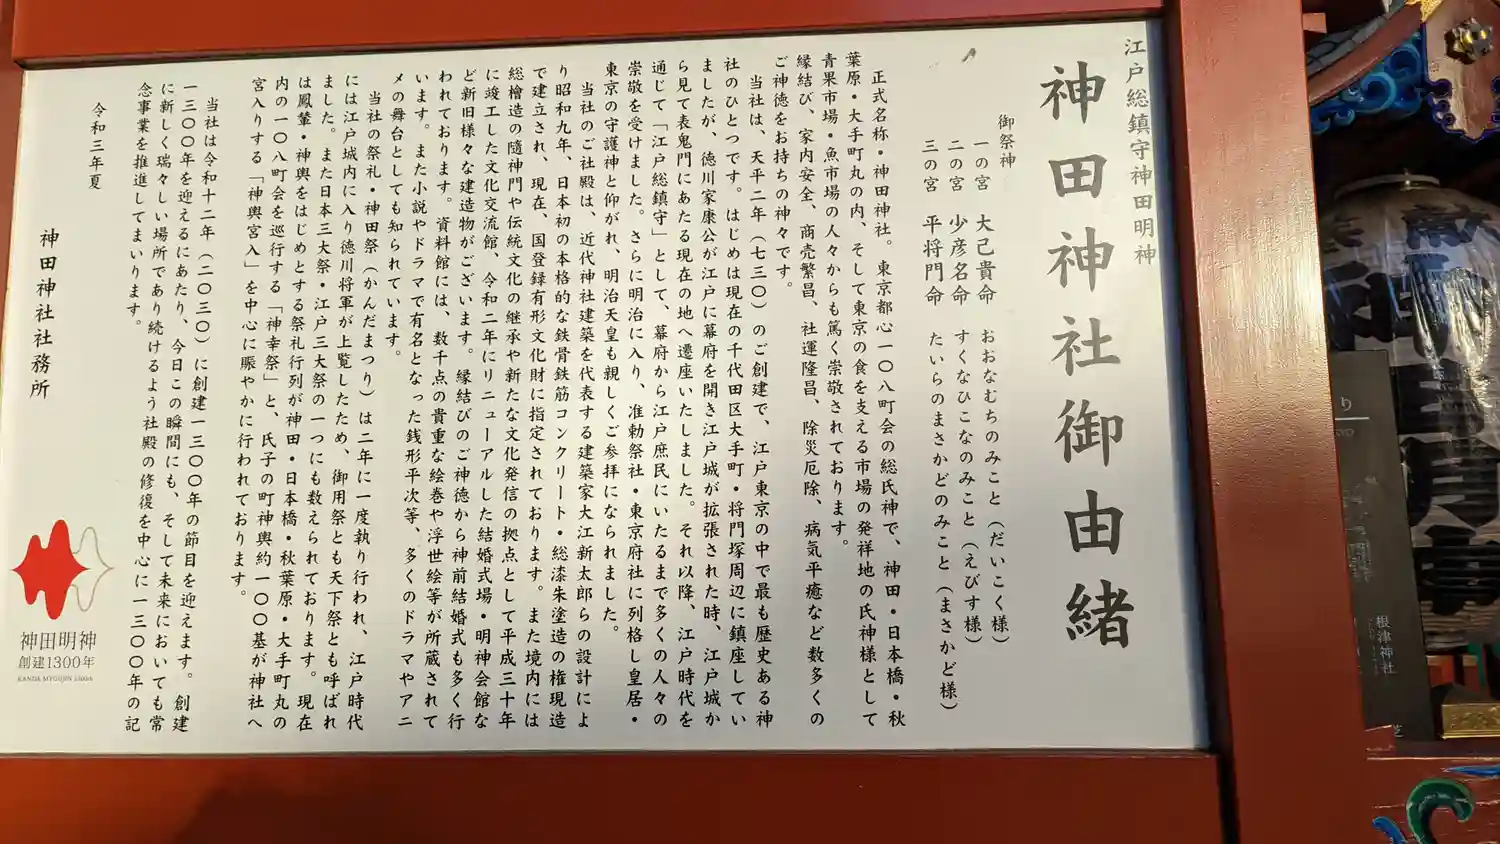 江戸総鎮守神田明神
神田神社御由緒
御祭神
一の宮 大己貴命 おおなむちのみこと（だいこく様）
二の宮 少彦名命 すくなひこなのみこと（えびす様）
三の宮 平将門命 たいらのまさかどのみこと（まさかど様）
正式名称・神田神社。東京都心一〇八町会の総氏神で、神田・日本橋・秋
葉原・大手町丸の内、そして東京の食を支える市場の発祥地の氏神様として
青果市場・魚市場の人々からも篤く崇敬されております。
縁結び、家内安全、商売繁昌、社運隆昌、除災厄除、病気平癒など数多くの
ご神徳をお持ちの神々です。
当社は、天平二年（七三〇）のご創建で、江戸東京の中で最も歴史ある神
社のひとつです。はじめは現在の千代田区大手町・将門塚周辺に鎮座してい
ましたが、徳川家康公が江戸に幕府を開き江戸城が拡張された時、江戸城か
ら見て表鬼門にあたる現在の地へ遷座いたしました。それ以降、江戸時代を
通じて「江戸総鎮守」として、幕府から江戸庶民にいたるまで多くの人々の
崇敬を受けました。さらに明治に入り、准勅祭社・東京府社に列格し皇居・
東京の守護神と仰がれ、明治天皇も親しくご参拝になられました。
当社のご社殿は、近代神社建築を代表する建築家大江新太郎らの設計によ
り昭和九年、日本初の本格的な鉄骨鉄筋コンクリート・総漆朱塗造の権現造
で建立され、現在、国登録有形文化財に指定されております。また境内には
総檜造の隨神門や伝統文化の継承や新たな文化発信の拠点として平成三十年
に竣工した文化交流館、令和二年にリニューアルした結婚式場・明神会館な
ど新旧様々な建造物がございます。縁結びのご神徳から神前結婚式も多く行
われております。資料館には、数千点の貴重な絵巻や浮世絵等が所蔵されて
います。また小説やドラマで有名となった銭形平次等、多くのドラマやアニ
メの舞台としても知られています。
当社の祭礼・神田祭（かんだまつり）は二年に一度執り行われ、江戸時代
には江戸城内に入り徳川将軍が上覧したため、御用祭とも天下祭とも呼ばれ
ました。また日本三大祭・江戸三大祭の一つにも数えられております。現在
は鳳輦・神輿をはじめとする祭礼行列が神田・日本橋・秋葉原・大手町丸の
内の一〇八町会を巡行する「神幸祭」と、氏子の町神輿約一〇〇基が神社へ
宮入りする「神輿宮入」を中心に賑やかに行われております。
当社は令和十二年（二〇三〇）に創建一三〇〇年の節目を迎えます。創建
一三〇〇年を迎えるにあたり、今日この瞬間にも、そして未来においても常
に新しく瑞々しい場所であり続けるよう社殿の修復を中心に一三〇〇年の記
念事業を推進してまいります。
令和三年夏
神田神社社務所
神田明神
創建1300年
KANDA MYOUJIN 1300th
根津神社